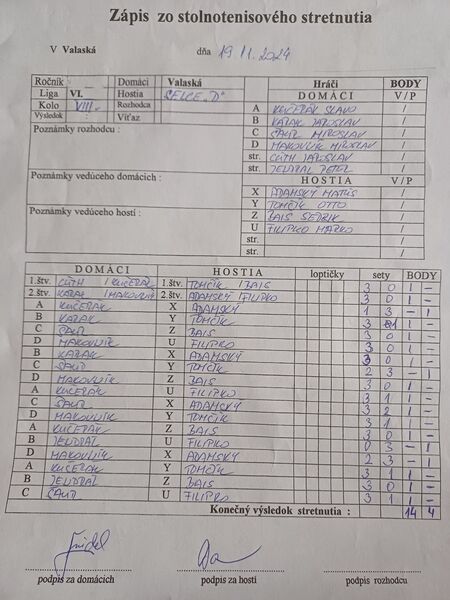 Zápis zo stolnotenisového stretnutia
V Valaská dňa 19.11.2024
Ročník Domáci Valaská Hráči BODY
Liga VI. Hostia SELCE „D“ DOMÁCI V/P
Kolo VIII. Rozhodca A KUČERÁK SLAVO /
Výsledok : Víťaz B KAZAK JAROSLAV /
Poznámky rozhodcu : C ŠAUŠ MIROSLAV /
D MAKOVNÍK MIROSLAV /
str. CÚTH JAROSLAV /
str. JENDRÁL PETER /
Poznámky vedúceho domácich : HOSTIA V/P
X ADAMSKÝ MATÚŠ /
Y TOMČÍK OTTO /
Poznámky vedúceho hostí : Z BAIS SEDRIK /
U FILIPKO MARKO /
str. /
str. /
DOMÁCI HOSTIA loptičky sety BODY
1.štv. CÚTH / KUČERÁK 1.štv. TOMČÍK / BAIS 3 0 1 –
2.štv. KAZAK / MAKOVNÍK 2.štv. ADAMSKÝ FILIPKO 3 0 1 –
A KUČERÁK X ADAMSKÝ 1 3 – 1
B KAZAK Y TOMČÍK 3 1 1 –
C Z BAIS 3 0 1 –
D MAKOVNÍK U FILIPKO 3 0 1 –
B KAZAK X ADAMSKÝ 3 0 1 –
C Y TOMČÍK 2 3 – 1
D MAKOVNÍK Z BAIS 3 0 1 –
A KUČERÁK U FILIPKO 3 1 1 –
C X ADAMSKÝ 3 2 1 –
D MAKOVNÍK Y TOMČÍK 3 1 1 –
A KUČERÁK Z BAIS 3 0 1 –
B JENDRÁL U FILIPKO 0 3 – 1
D MAKOVNÍK X ADAMSKÝ 2 3 – 1
A KUČERÁK Y TOMČÍK 3 1 1 –
B JENDRÁL Z BAIS 3 0 1 –
C U FILIPKO 3 1 1 –
Konečný výsledok stretnutia : 14 4
podpis za domácich podpis za hostí podpis rozhodcu